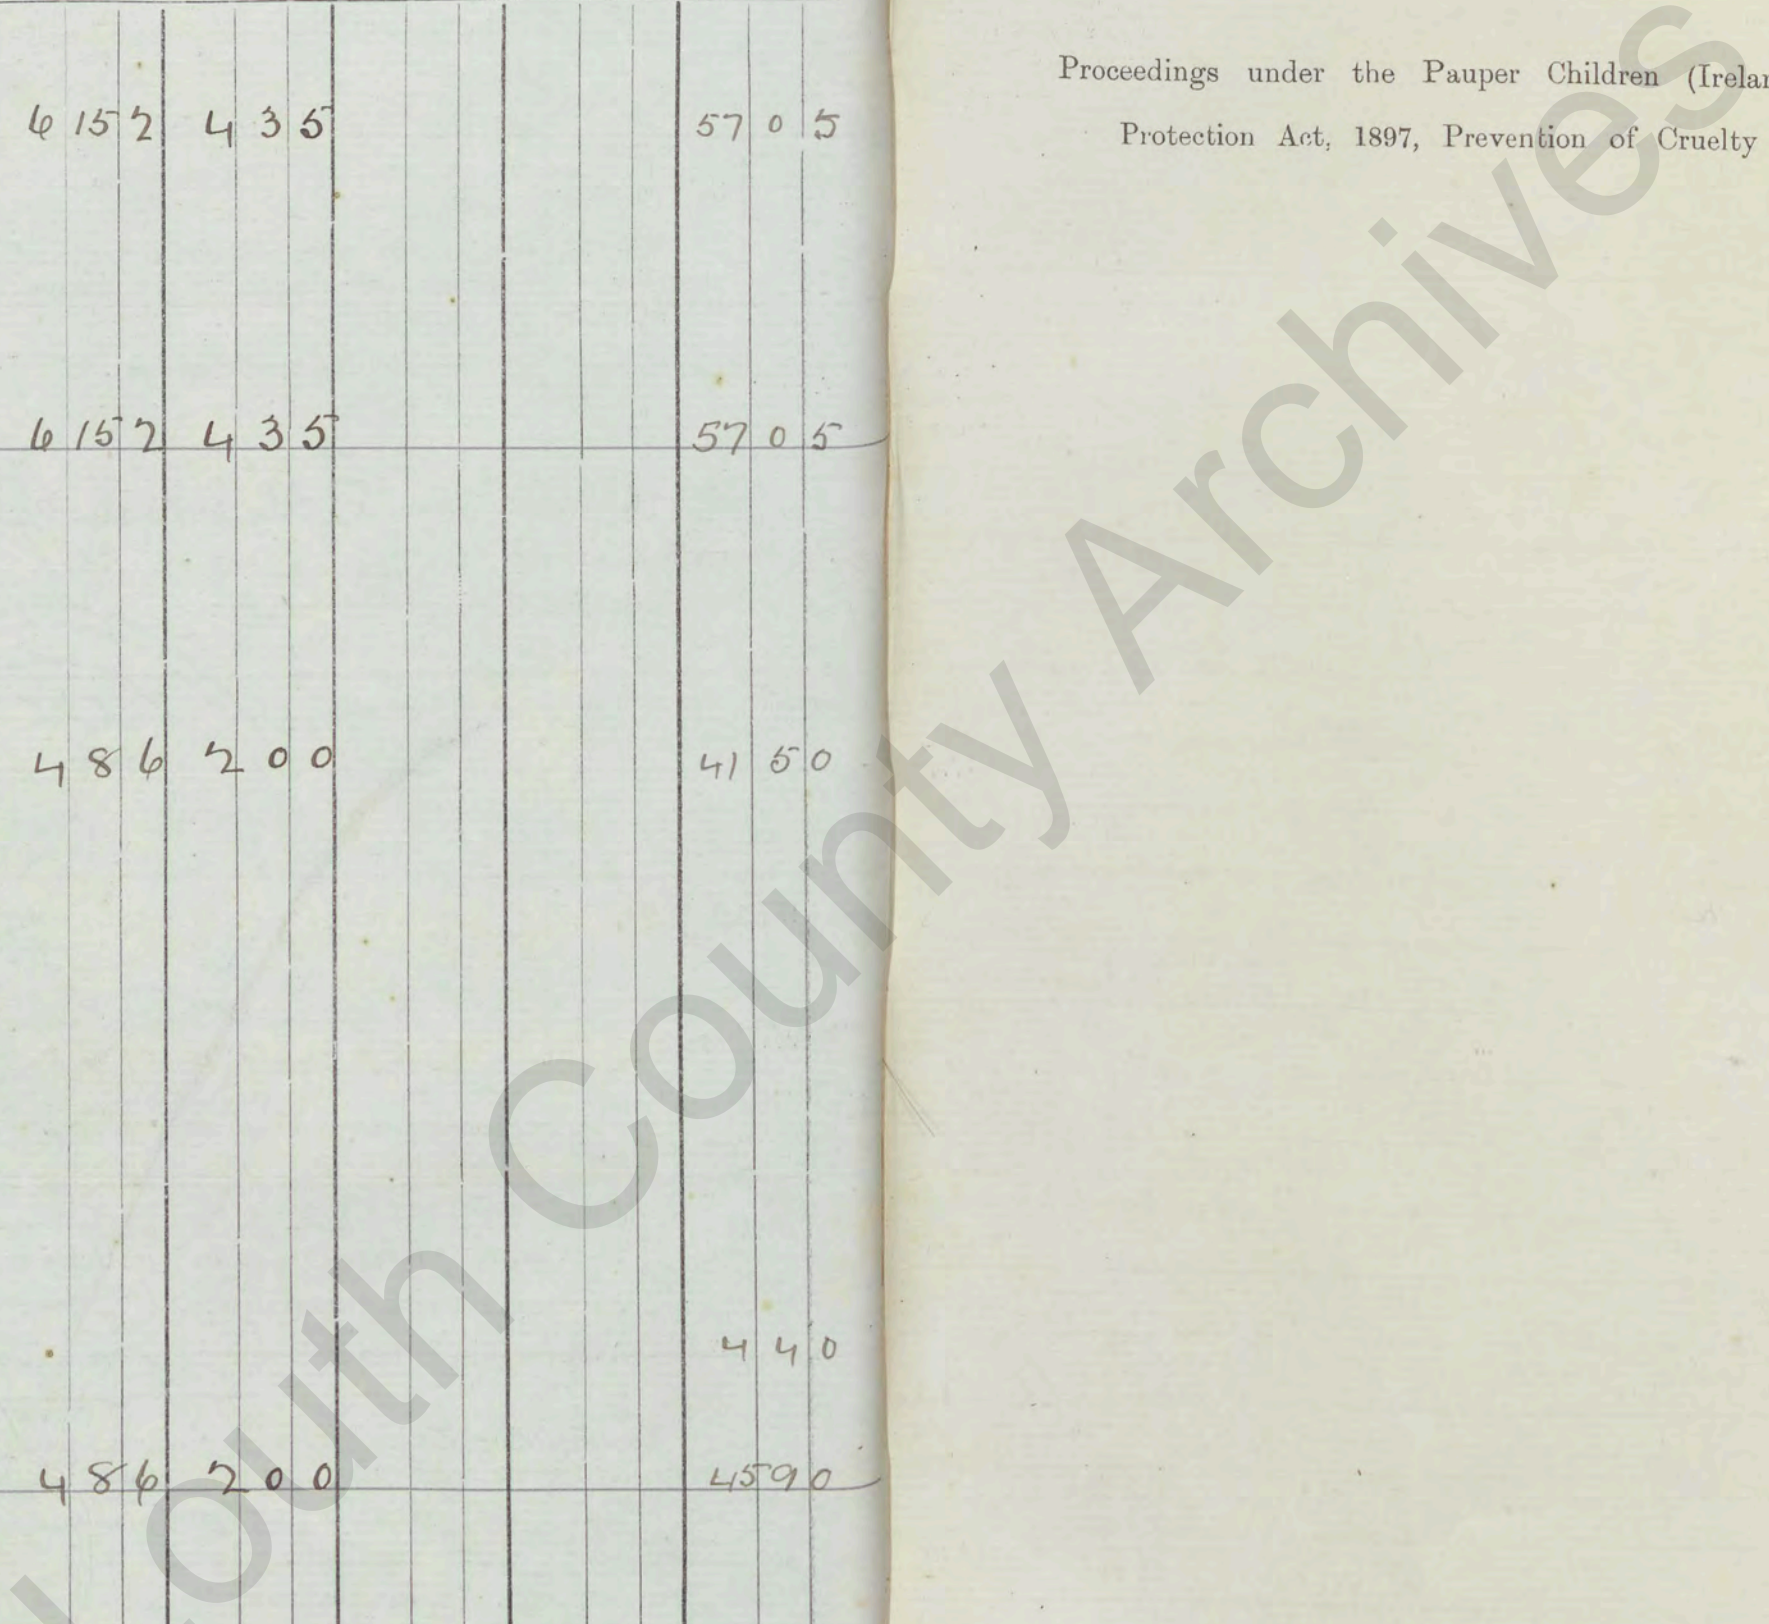 6 15 2 4 3 5 57 0 5
6 15 2 4 3 5 57 0 5
4 8 6 2 0 0 41 5 0
4 4 0
4 8 6 2 0 0 45 9 0
Proceedings under the Pauper Children (Irelan
Protection Act, 1897, Prevention of Cruelty
outh County Archives